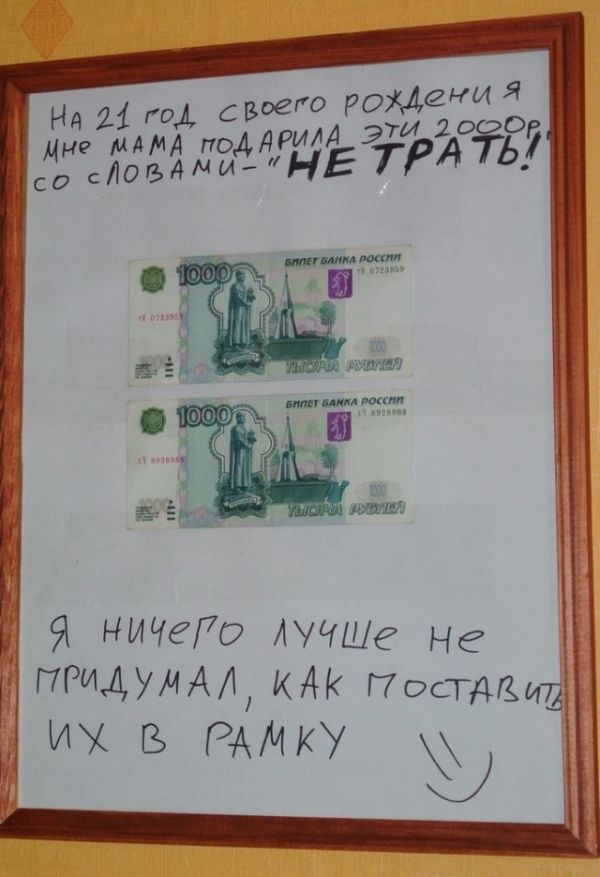 На 21 год своего рождения
мне мама подарила эти 2000р.
со словами – "НЕ ТРАТЬ!"
БИЛЕТ БАНКА РОССИИ
1000
тЯ 0723959
1000
1000
ТЫСЯЧА РУБЛЕЙ
БИЛЕТ БАНКА РОССИИ
1000
хЧ 8928988
хЧ 8928988
1000
1000
ТЫСЯЧА РУБЛЕЙ
Я ничего лучше не
придумал, как поставить
их в рамку